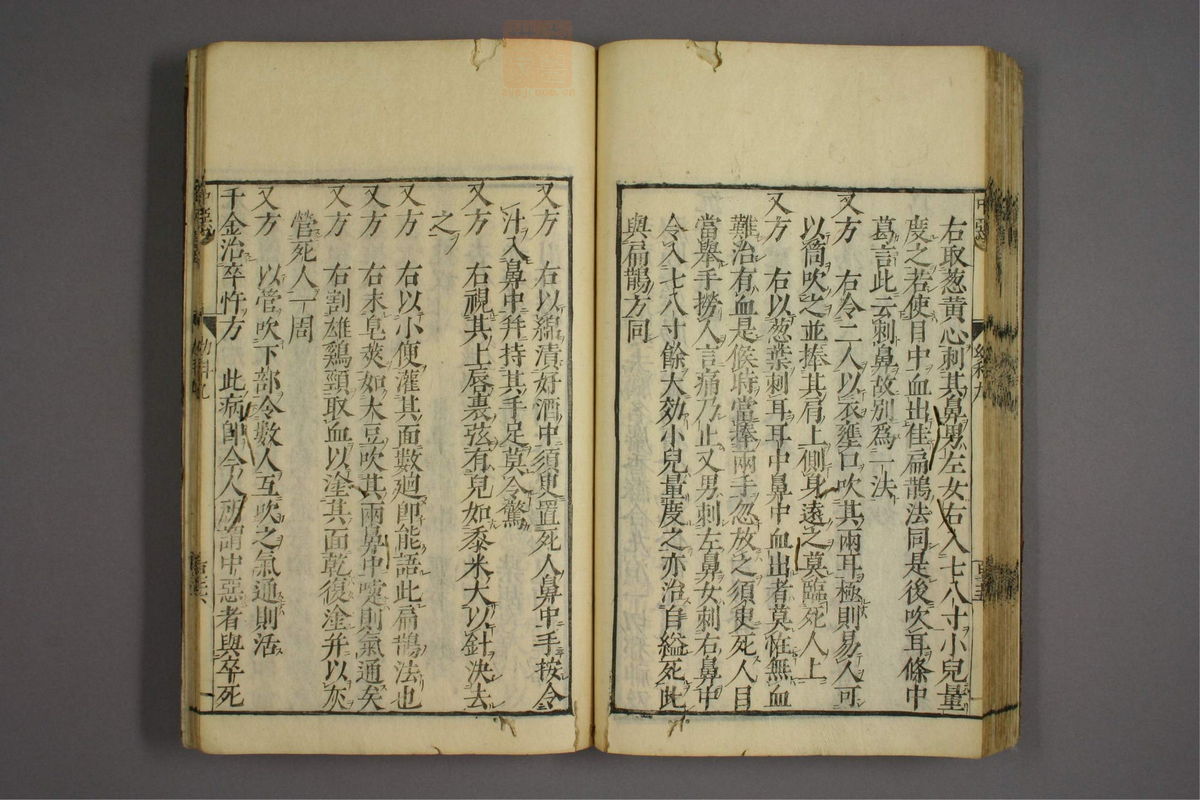 右取葱黄心刺其鼻男左女右入七八寸小兒量
度之若使目中血出佳扁鵲法同是後吹耳條中
葛言此云刺鼻故別爲一法
又方　右令二人以衣壅口吹其兩耳極則易人可
以筒吹之並捧其肩上側身遠之莫臨死人上
又方　右以葱葉刺耳耳中鼻中血出者莫怪無血
難治有血是候時當捧兩手忽放之須臾死人目
當舉手撈人言痛乃止又男刺左鼻女刺右鼻中
令入七八寸餘大効小兒量度之亦治自縊死此
與扁鵲方同
又方　右以綿漬好酒中須臾置死人鼻中手按令
汁入鼻中并持其手足莫令驚
又方　右視其上唇裏弦有兒如黍米大以針決去
之
又方　右以小便灌其面數廻即能語此扁鵲法也
又方　右末皂莢如大豆吹其兩鼻中嚏則氣通矣
又方　右割雄鷄頸取血以塗其面乾復塗并以灰
營死人一周
又方　以管吹下部令數人互吹之氣通則活
千金治卒忤方　此病即今人所謂中惡者與卒死